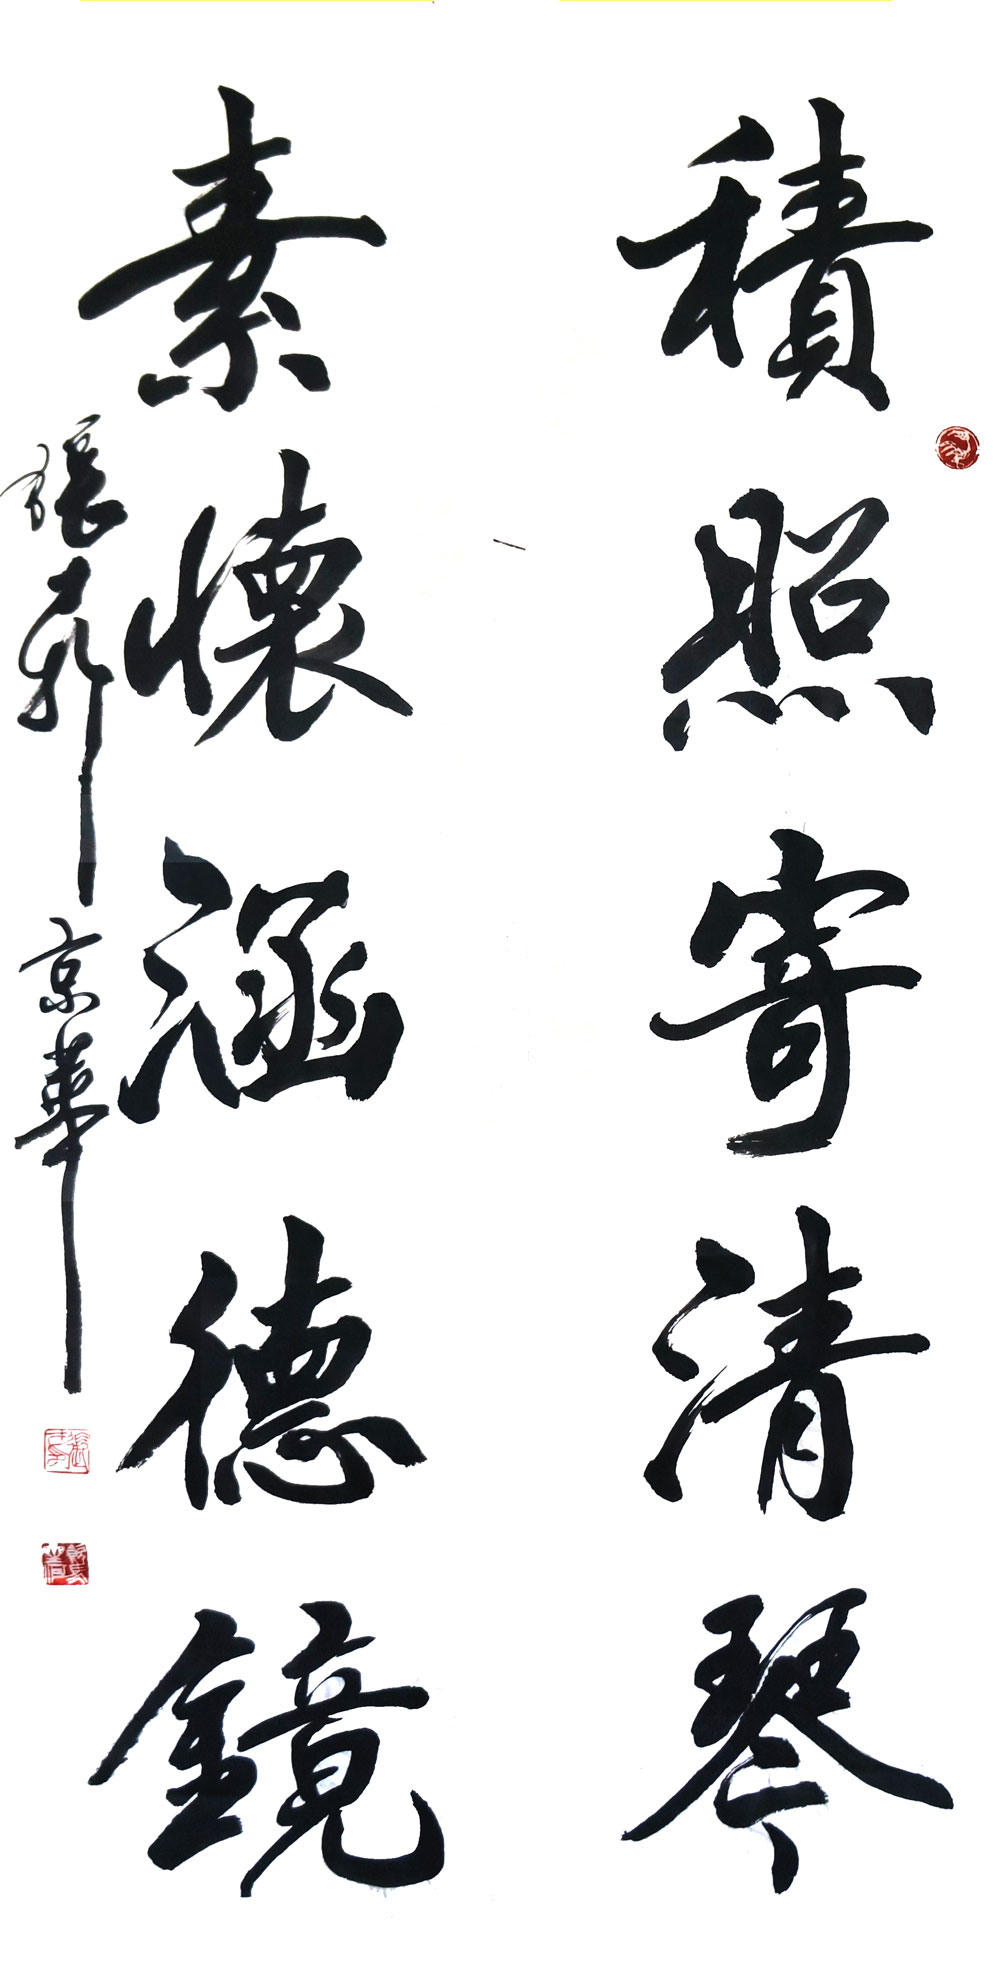 積照寄清琴
素懷涵德鏡
張
京華